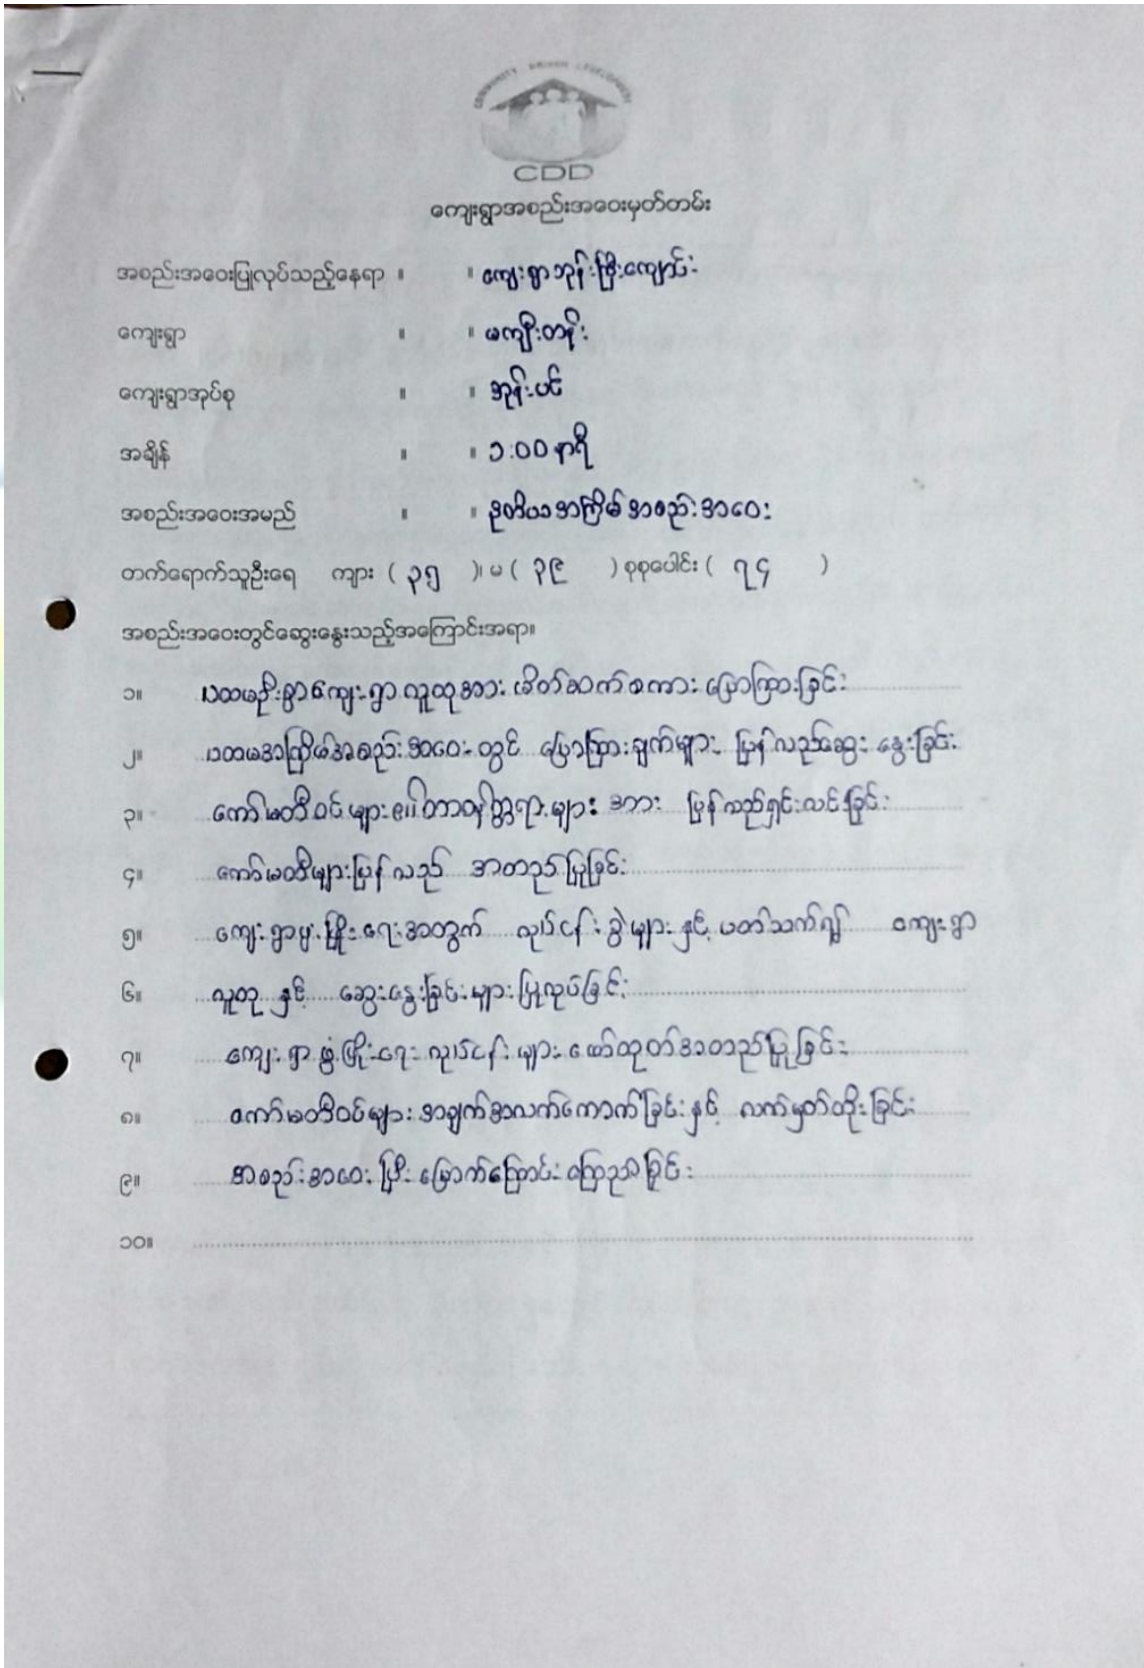 COMMUNITY DRIVEN DEVELOPMENT
CDD
ကျေးရွာအစည်းအဝေးမှတ်တမ်း
အစည်းအဝေးပြုလုပ်သည့်နေရာ ။ ။ ကျေးရွာဘုန်းကြီးကျောင်း
ကျေးရွာ ။ ။ မကျီးတန်း
ကျေးရွာအုပ်စု ။ ။ အုန်းပင်
အချိန် ။ ။ ၁:၀၀ နာရီ
အစည်းအဝေးအမည် ။ ။ ဒုတိယအကြိမ်အစည်းအဝေး
တက်ရောက်သူဦးရေ ကျား ( ၃၅ )၊ မ ( ၃၉ ) စုစုပေါင်း ( ၇၄ )
အစည်းအဝေးတွင်ဆွေးနွေးသည့်အကြောင်းအရာ။
၁။ ပထမဦးစွာကျေးရွာလူထုအား မိတ်ဆက်စကား ပြောကြားခြင်း
၂။ ပထမအကြိမ်အစည်းအဝေးတွင် ပြောကြားချက်များ ပြန်လည်ဆွေးနွေးခြင်း
၃။ ကော်မတီဝင်များ၏ တာဝန်ဝတ္တရားများ အား ပြန်လည်ရှင်းလင်းခြင်း
၄။ ကော်မတီများပြန်လည် အတည်ပြုခြင်း
၅။ ကျေးရွာဖွံ့ဖြိုးရေးအတွက် လုပ်ငန်းခွဲများနှင့် ပတ်သက်၍ ကျေးရွာ
၆။ လူထု နှင့် ဆွေးနွေးခြင်းများ ပြုလုပ်ခြင်း
၇။ ကျေးရွာဖွံ့ဖြိုးရေး လုပ်ငန်းများ ဖော်ထုတ်အတည်ပြုခြင်း
၈။ ကော်မတီဝင်များ အချက်အလက်ကောက်ခြင်းနှင့် လက်မှတ်ထိုးခြင်း
၉။ အစည်းအဝေး ပြီးမြောက်ကြောင်း ကြေညာခြင်း
၁၀။